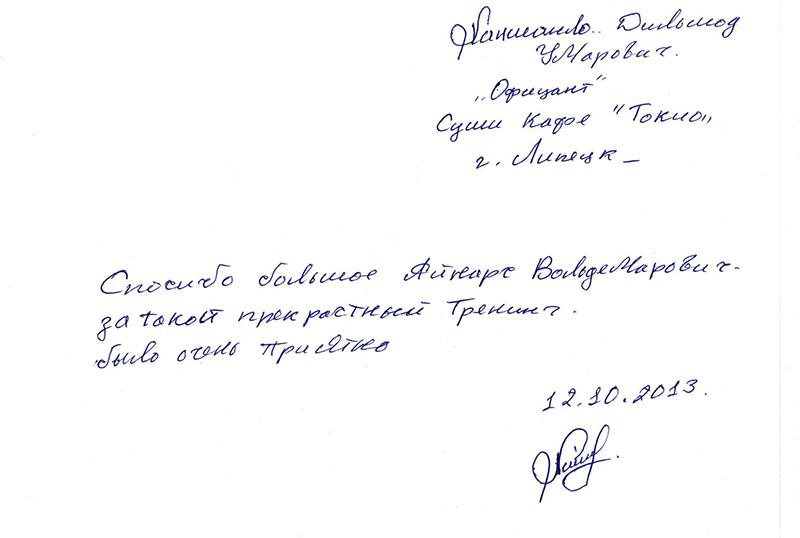 Дильшод
Умарович.
„Офицант"
Суши Кафе "Токио„
г. Липецк –
Спосибо большое Айнарс ВольдеМарович.
за такой прекрастный Тренинг.
было очень Приятно
12.10.2013.